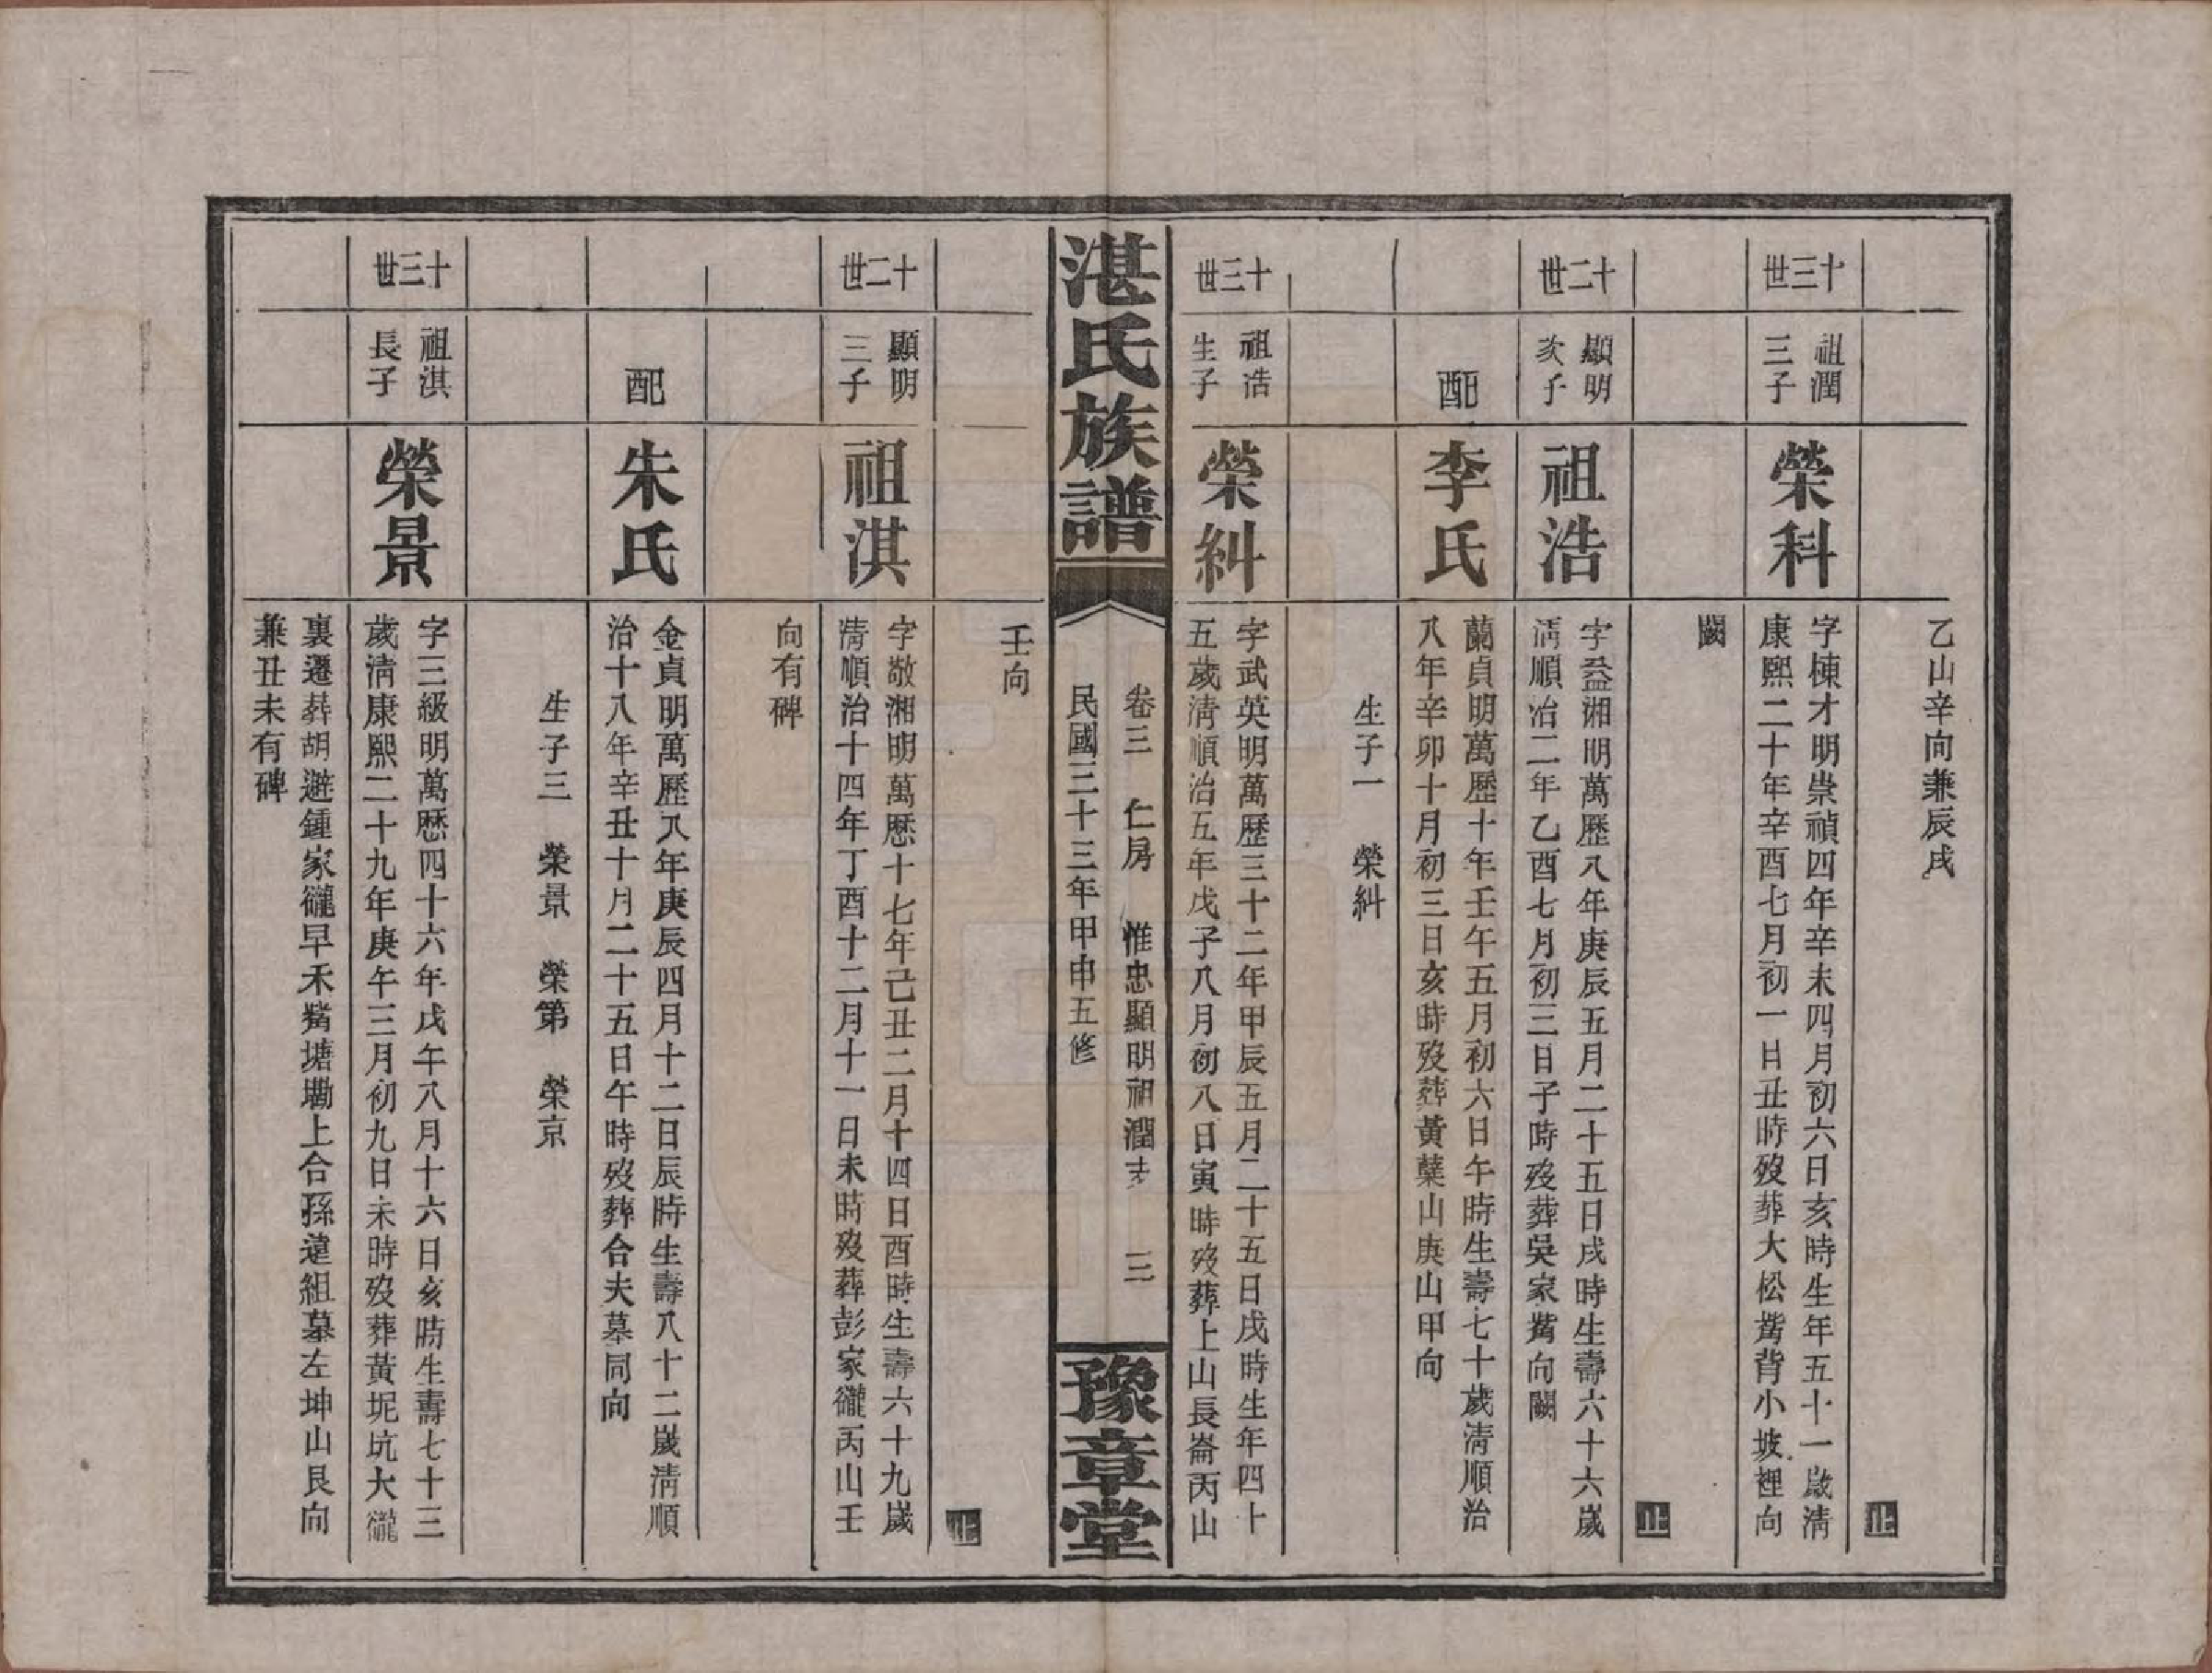 乙山辛向兼辰戌
止
十三世
祖潤
三子
榮科
字棟才明崇禎四年辛未四月初六日亥時生年五十一歲清
康熙二十年辛酉七月初一日丑時歿葬大松觜背小坡裡向
闕
止
十二世
顯明
次子
祖浩
字益湘明萬歷八年庚辰五月二十五日戌時生壽六十六歲
淸順治二年乙酉七月初三日子時歿葬吳家觜向闕
配
李氏
蘭貞明萬歷十年壬午五月初六日午時生壽七十歲淸順治
八年辛卯十月初三日亥時歿葬黃蘗山庚山甲向
生子一 榮糾
十三世
祖浩
生子
榮糾
字武英明萬歷三十二年甲辰五月二十五日戌時生年四十
五歲淸順治五年戊子八月初八日寅時歿葬上山長崙丙山
湛氏族譜
卷三 仁房 惟忠顯明祖潤支 三
民國三十三年甲申五修
豫章堂
壬向
止
十二世
顯明
三子
祖淇
字敬湘明萬歷十七年己丑二月十四日酉時生壽六十九歲
淸順治十四年丁酉十二月十一日未時歿葬彭家衪丙山壬
向有碑
配
朱氏
金貞明萬歷八年庚辰四月十二日辰時生壽八十二歲淸順
治十八年辛丑十月二十五日午時歿葬合夫墓同向
生子三 榮景 榮第 榮京
十三世
祖淇
長子
榮景
字三級明萬歷四十六年戊午八月十六日亥時生壽七十三
歲淸康熙二十九年庚午三月初九日未時歿葬黃坭坑大
裏遷葬胡避鍾家早禾觜塘墈上合孫違組墓左坤山艮向
兼丑未有碑